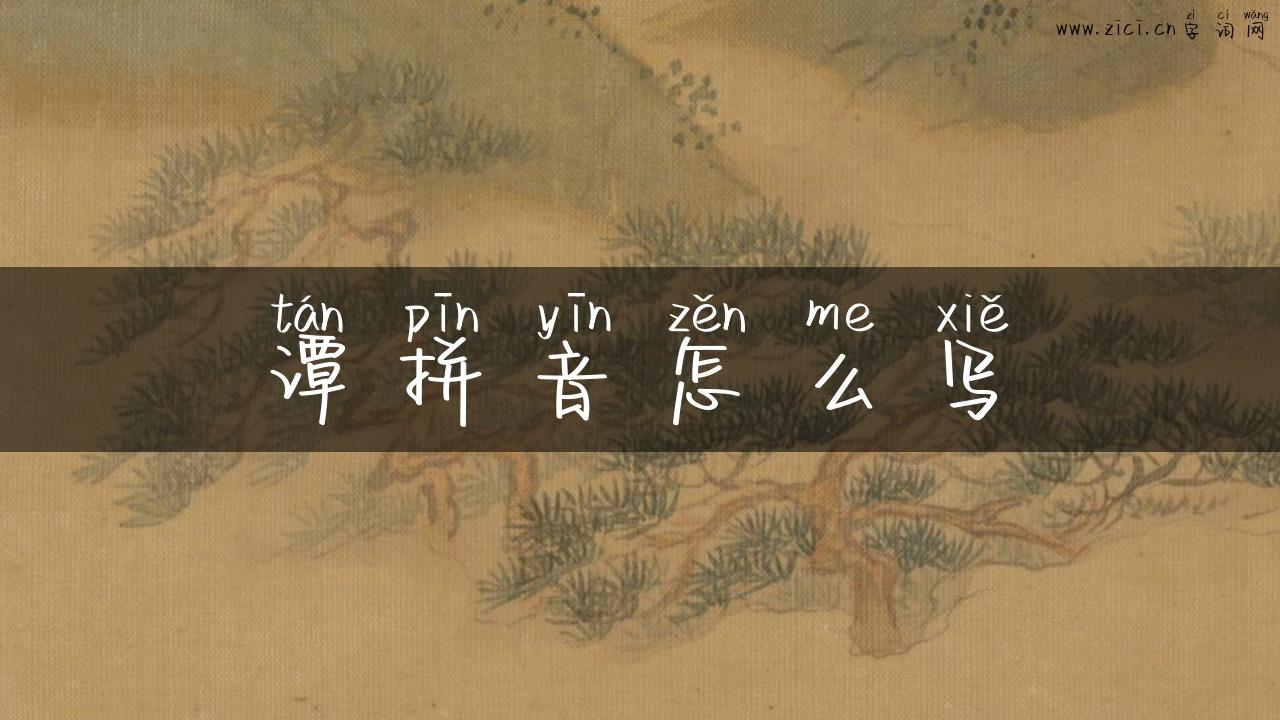 zì cí wǎng
www.zici.cn 字 词 网
tán pīn yīn zěn me xiě
谭 拼 音 怎 么 写